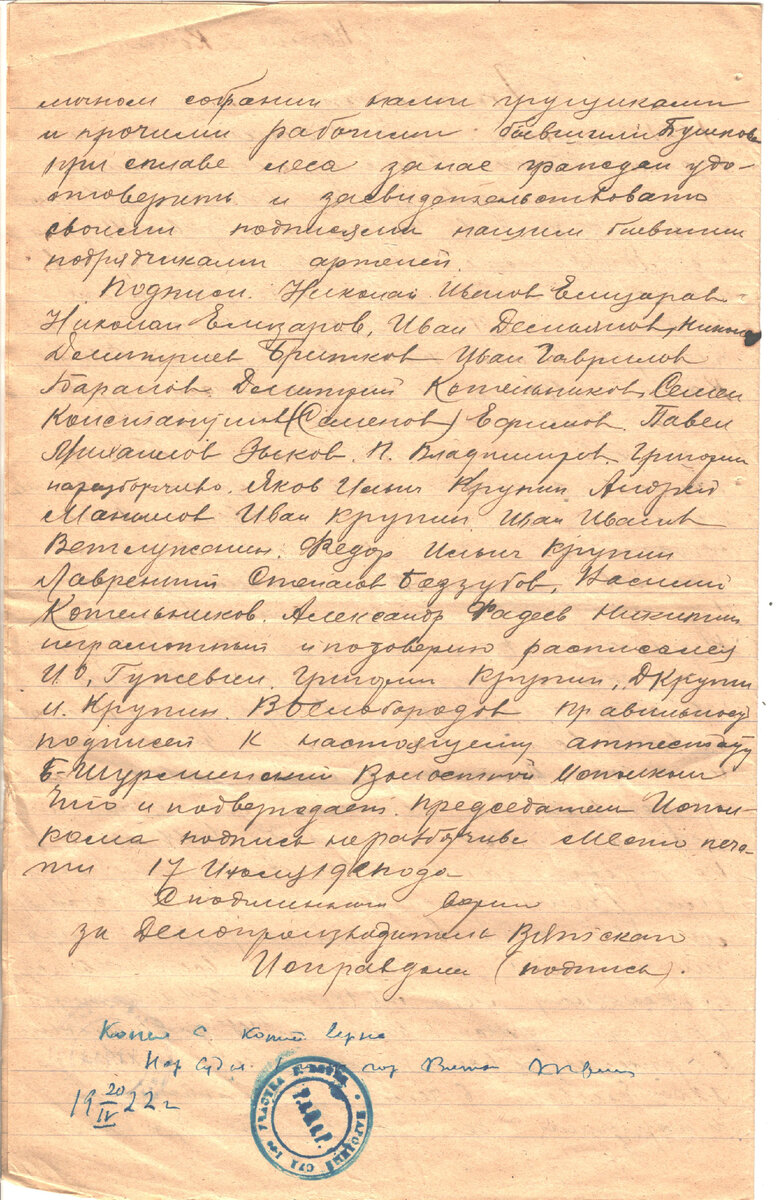 личном собрании нами грузчиками
и прочими рабочими бывшими Бушков
при сплаве леса за нас граждан удо-
стоверить и засвидетельствовать
своими подписями нашим бывшим
подрядчиками артелей.
Подписи. Николай Иванов Елизаров
Николай Елизаров, Иван Демьянов, Никола
Дмитриев Бритков Иван Гаврилов
Баранов. Дмитрий Котельников. Семен
Константинов (Саменов) Ефимов. Павел
Михайлов Зыков. П. Владимиров. Григорий
неразборчиво. Яков Ильич Крупин Андрей
Иван Крупин. Иван Иванов
Ветлужанин. Федор Ильич Крупин
Лаврентий Степанов Беззубов, Василий
Котельников. Александр Фадеев Никитин
неграмотный и по доверию расписался
И.О. Гужевин. Григорий Крупин, Д Крупин
И. Крупин. В Белобородов правильность
подписей к настоящему аттестату
Б-Шурминский Волостной Исполком
что и подверждает. Председатель Испол-
кома подпись неразбочиво Место печа-
ти 17 года
С подлинным верно
за Делопроизводитель Вятской
Исправдом (подпись).
Копия с копией верна
Нар Судья гор Вятки
19 20/IV 22 г
НАРОДНЫЙ СУД 1-го УЧАСТКА Г. ВЯТКИ
Р.С.Ф.С.Р.